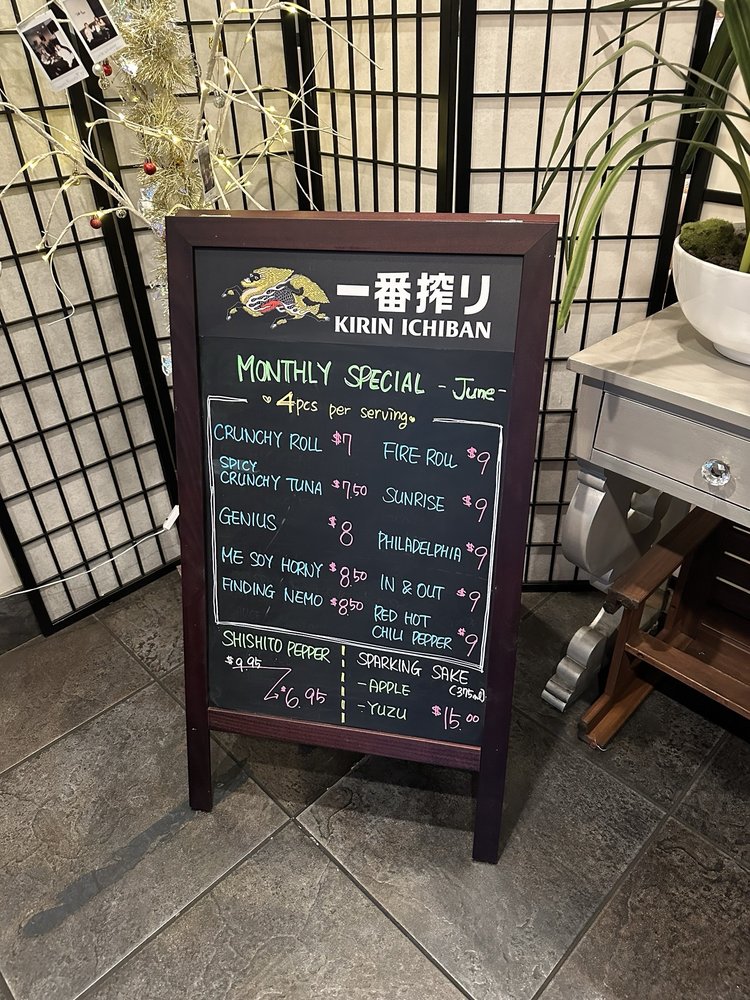 一番搾り
KIRIN ICHIBAN
MONTHLY SPECIAL - June -
4pcs per serving
CRUNCHY ROLL $7
SPICY
CRUNCHY TUNA $7.50
GENIUS $8
ME SOY HORNY $8.50
FINDING NEMO $8.50
FIRE ROLL $9
SUNRISE $9
PHILADELPHIA $9
IN & OUT $9
RED HOT
CHILI PEPPER $9
SHISHITO PEPPER
$9.95
$6.95
SPARKING SAKE
(375ml)
- APPLE
- YUZU $15.00